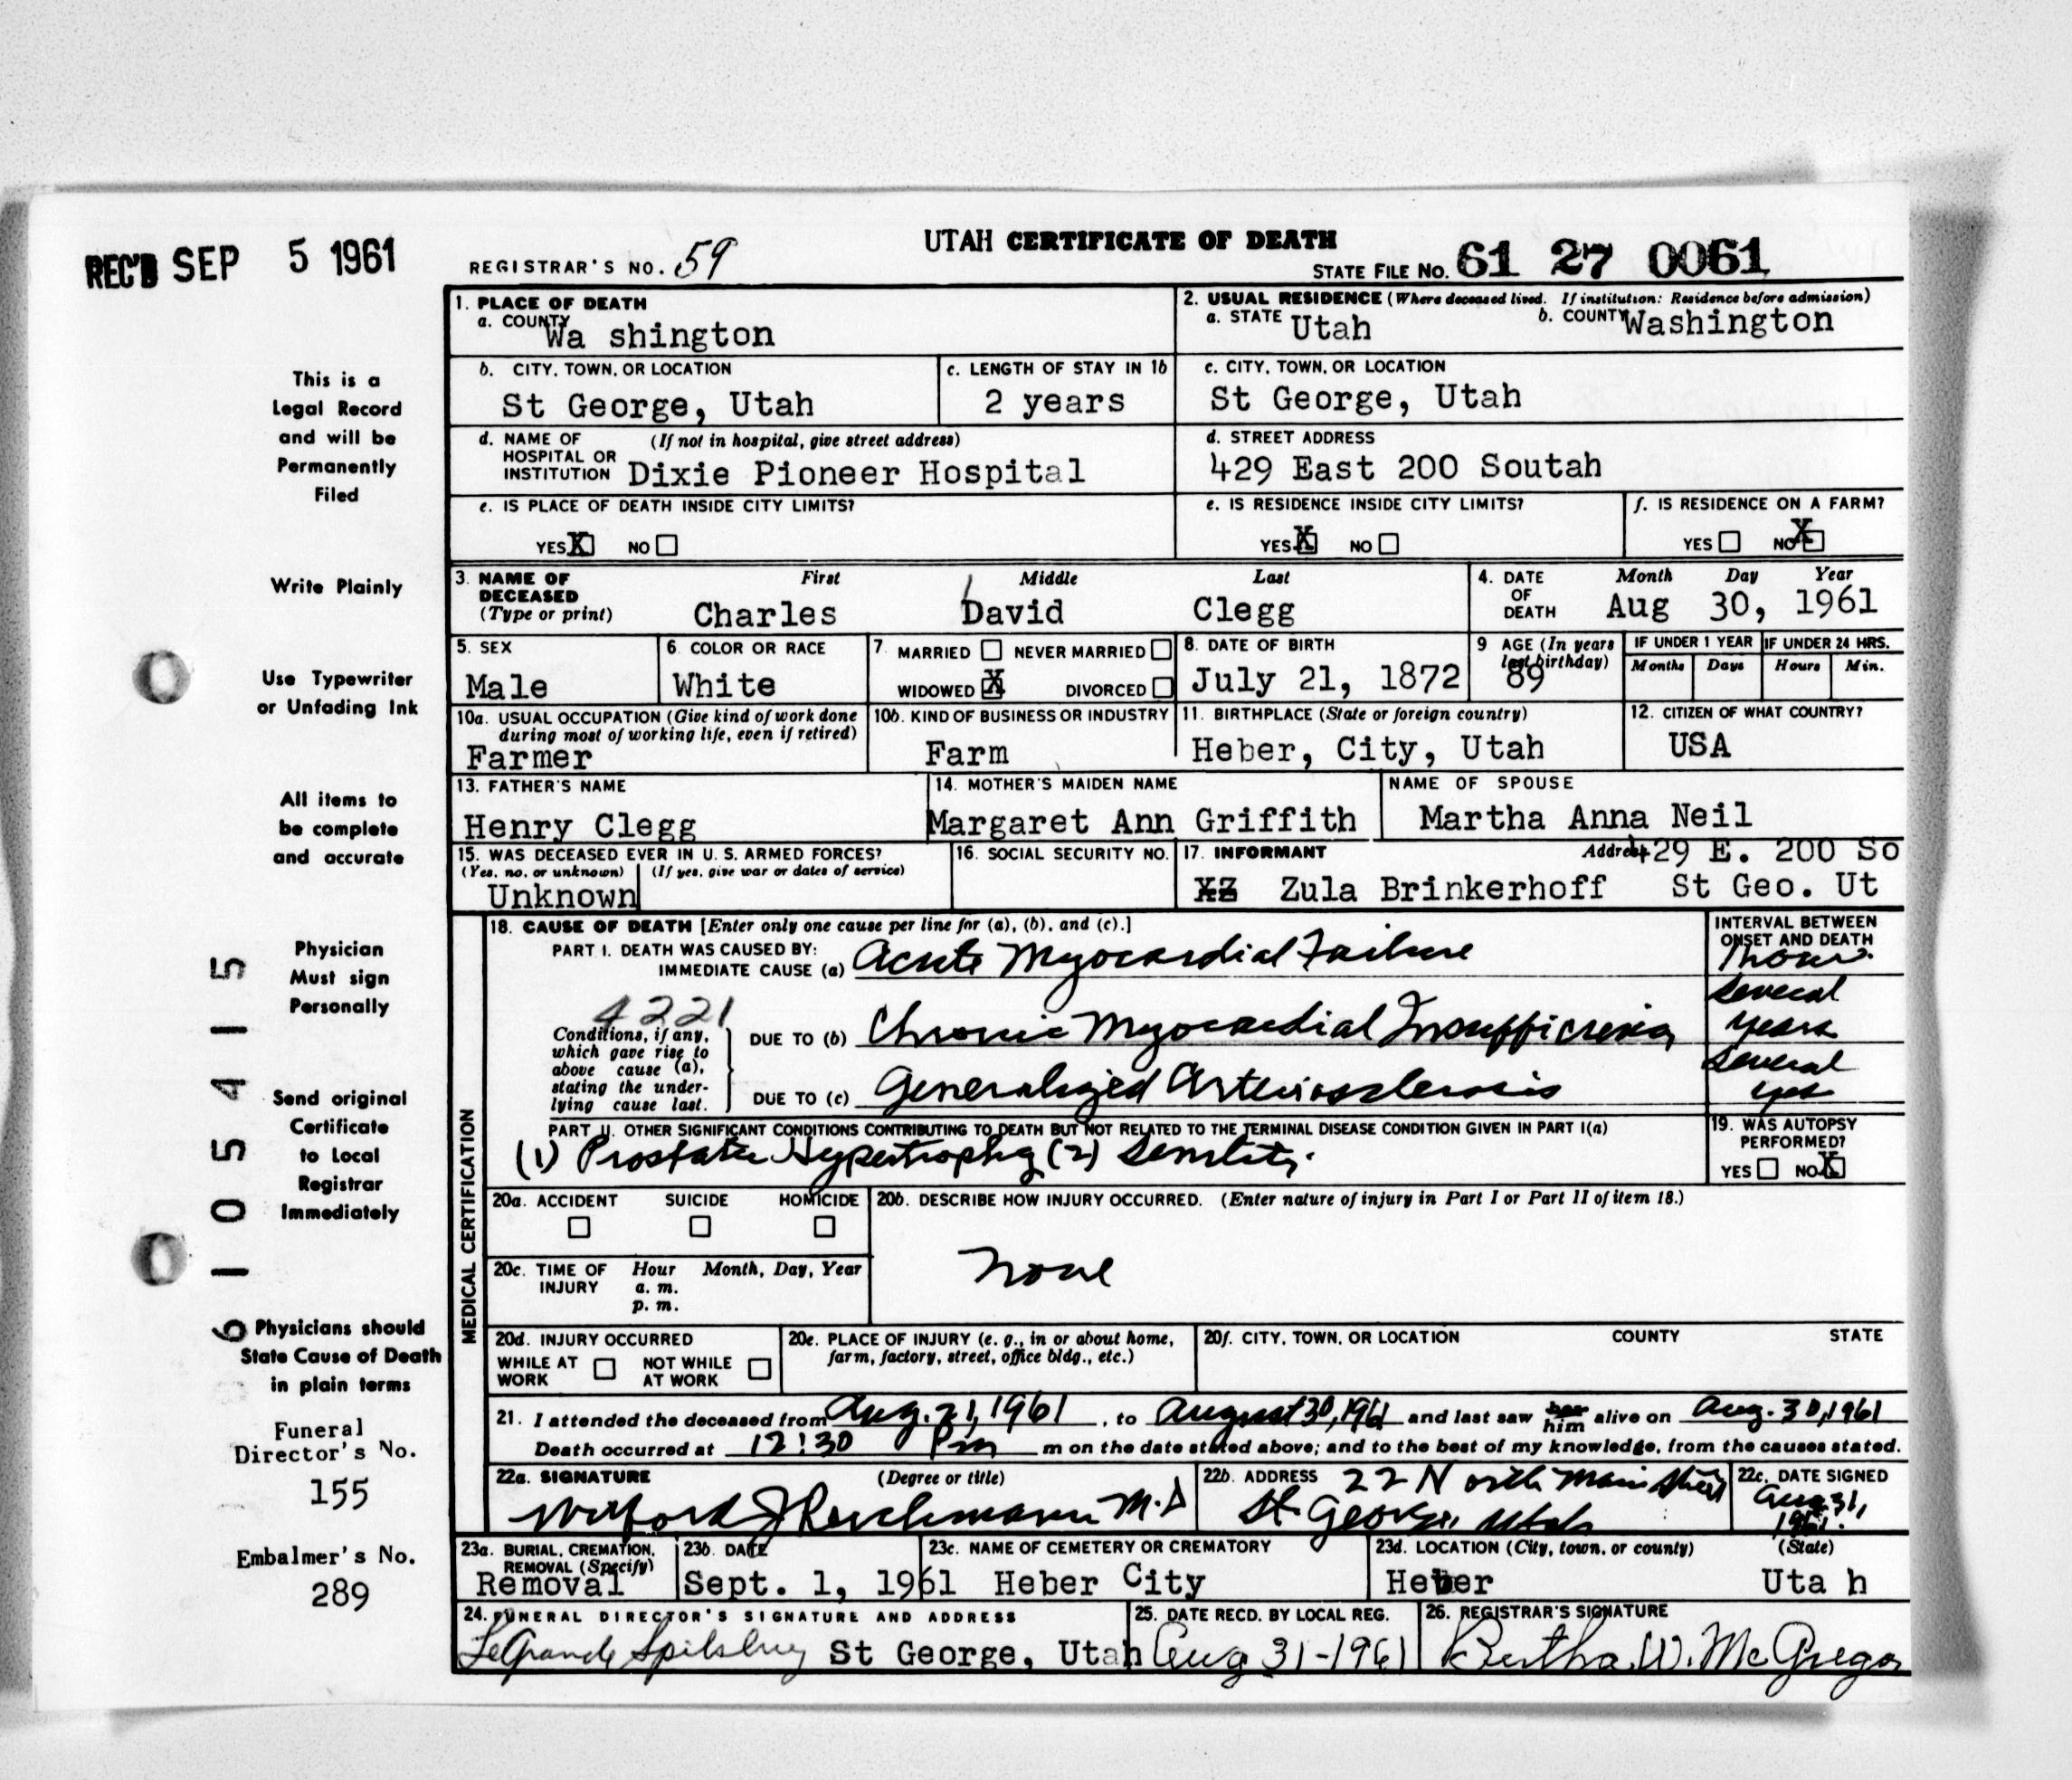 REC'D SEP 5 1961
REGISTRAR'S NO. 59
UTAH CERTIFICATE OF DEATH
STATE FILE NO. 61 27 0061
This is a
Legal Record
and will be
Permanently
Filed
Write Plainly
Use Typewriter
or Unfading Ink
All items to
be complete
and accurate
Physician
Must sign
Personally
Send original
Certificate
to Local
Registrar
Immediately
Physicians should
State Cause of Death
in plain terms
Funeral
Director's No.
155
Embalmer's No.
289
6 1 0 5 4 1 5
1. PLACE OF DEATH
a. COUNTY
Wa shington
2. USUAL RESIDENCE (Where deceased lived. If institution: Residence before admission)
a. STATE Utah b. COUNTY Washington
b. CITY, TOWN, OR LOCATION
St George, Utah
c. LENGTH OF STAY IN 1b
2 years
c. CITY, TOWN, OR LOCATION
St George, Utah
d. NAME OF (If not in hospital, give street address)
HOSPITAL OR
INSTITUTION Dixie Pioneer Hospital
d. STREET ADDRESS
429 East 200 Soutah
e. IS PLACE OF DEATH INSIDE CITY LIMITS?
YES X NO
e. IS RESIDENCE INSIDE CITY LIMITS?
YES X NO
f. IS RESIDENCE ON A FARM?
YES NO X
3. NAME OF First Middle Last
DECEASED
(Type or print) Charles David Clegg
4. DATE Month Day Year
OF
DEATH Aug 30, 1961
5. SEX
Male
6. COLOR OR RACE
White
7 MARRIED NEVER MARRIED
WIDOWED X DIVORCED
8. DATE OF BIRTH
July 21, 1872
9 AGE (In years
last birthday)
89
IF UNDER 1 YEAR IF UNDER 24 HRS.
Months Days Hours Min.
10a. USUAL OCCUPATION (Give kind of work done
during most of working life, even if retired)
Farmer
10b. KIND OF BUSINESS OR INDUSTRY
Farm
11. BIRTHPLACE (State or foreign country)
Heber, City, Utah
12. CITIZEN OF WHAT COUNTRY?
USA
13. FATHER'S NAME
Henry Clegg
14. MOTHER'S MAIDEN NAME
Margaret Ann Griffith
NAME OF SPOUSE
Martha Anna Neil
15. WAS DECEASED EVER IN U. S. ARMED FORCES?
(Yes, no, or unknown) (If yes, give war or dates of service)
Unknown
16. SOCIAL SECURITY NO.
17. INFORMANT Address 429 E. 200 So
Zula Brinkerhoff St Geo. Ut
MEDICAL CERTIFICATION
18. CAUSE OF DEATH [Enter only one cause per line for (a), (b), and (c).]
INTERVAL BETWEEN
ONSET AND DEATH
PART I. DEATH WAS CAUSED BY:
IMMEDIATE CAUSE (a) Acute Myocardial Failure
4221
Conditions, if any,
which gave rise to
above cause (a),
stating the under-
lying cause last.
DUE TO (b) Chronic Myocardial Insufficiency
Several
years
DUE TO (c) Generalized Arteriosclerosis
Several
yrs
PART II. OTHER SIGNIFICANT CONDITIONS CONTRIBUTING TO DEATH BUT NOT RELATED TO THE TERMINAL DISEASE CONDITION GIVEN IN PART I(a)
(1) Prostatic Hypertrophy (2) Senility.
19. WAS AUTOPSY
PERFORMED?
YES NO X
20a. ACCIDENT SUICIDE HOMICIDE
20b. DESCRIBE HOW INJURY OCCURRED. (Enter nature of injury in Part I or Part II of item 18.)
None
20c. TIME OF Hour Month, Day, Year
INJURY a. m.
p. m.
20d. INJURY OCCURRED
WHILE AT NOT WHILE
WORK AT WORK
20e. PLACE OF INJURY (e. g., in or about home,
farm, factory, street, office bldg., etc.)
20f. CITY, TOWN, OR LOCATION COUNTY STATE
21. I attended the deceased from Aug. 21, 1961, to August 30, 1961 and last saw her him alive on Aug. 30, 1961
Death occurred at 12:30 Pm m on the date stated above; and to the best of my knowledge, from the causes stated.
22a. SIGNATURE (Degree or title)
Wilford J Reichmann M.D
22b. ADDRESS 22 North Main Street
St. George, Utah
22c. DATE SIGNED
Aug 31,
1961.
23a. BURIAL, CREMATION,
REMOVAL (Specify)
Removal
23b. DATE
Sept. 1, 1961
23c. NAME OF CEMETERY OR CREMATORY
Heber City
23d. LOCATION (City, town, or county) (State)
Heber Uta h
24. FUNERAL DIRECTOR'S SIGNATURE AND ADDRESS
LeGrande Spilsbury St George, Utah
25. DATE RECD. BY LOCAL REG.
Aug 31-1961
26. REGISTRAR'S SIGNATURE
Bertha W. McGregor